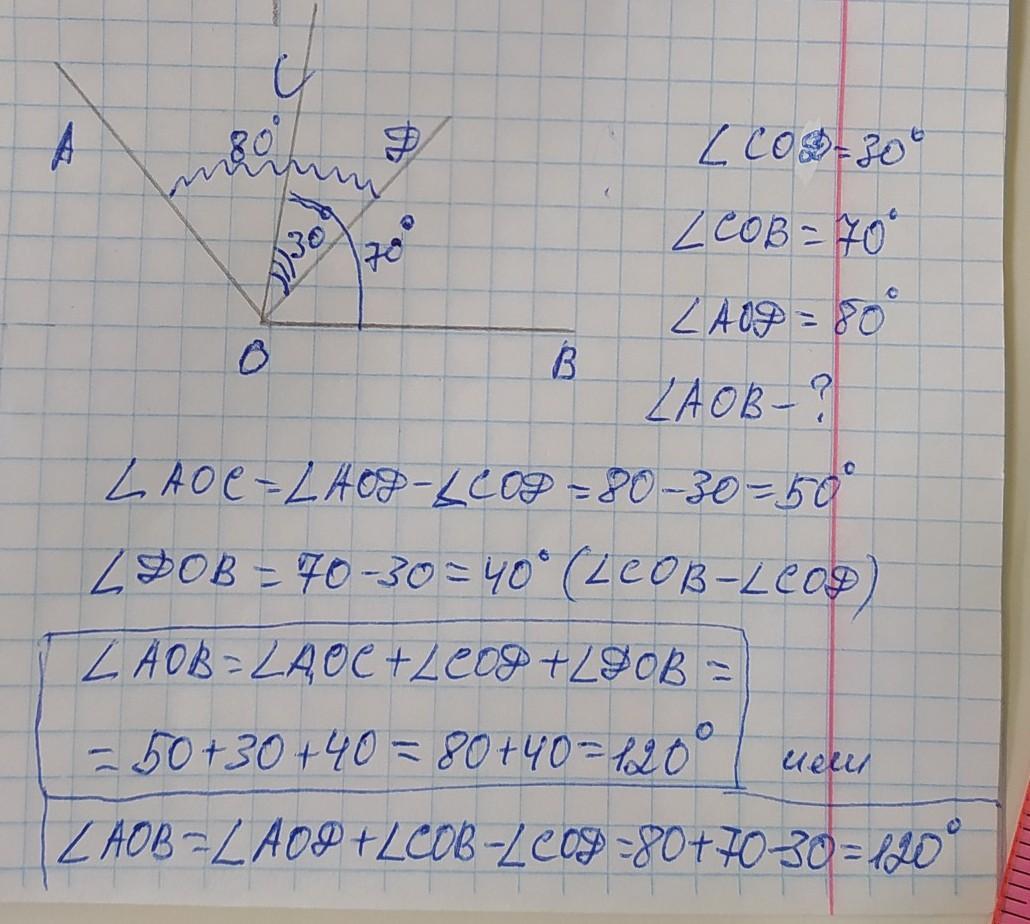 A
C
80°
D
30
70°
O
B
∠COD=30°
∠COB=70°
∠AOD=80°
∠AOB-?
∠AOC=∠AOD-∠COD=80-30=50°
∠DOB=70-30=40° (∠COB-∠COD)
∠AOB=∠AOC+∠COD+∠DOB=
=50+30+40=80+40=120° или
∠AOB=∠AOD+∠COB-∠COD=80+70-30=120°